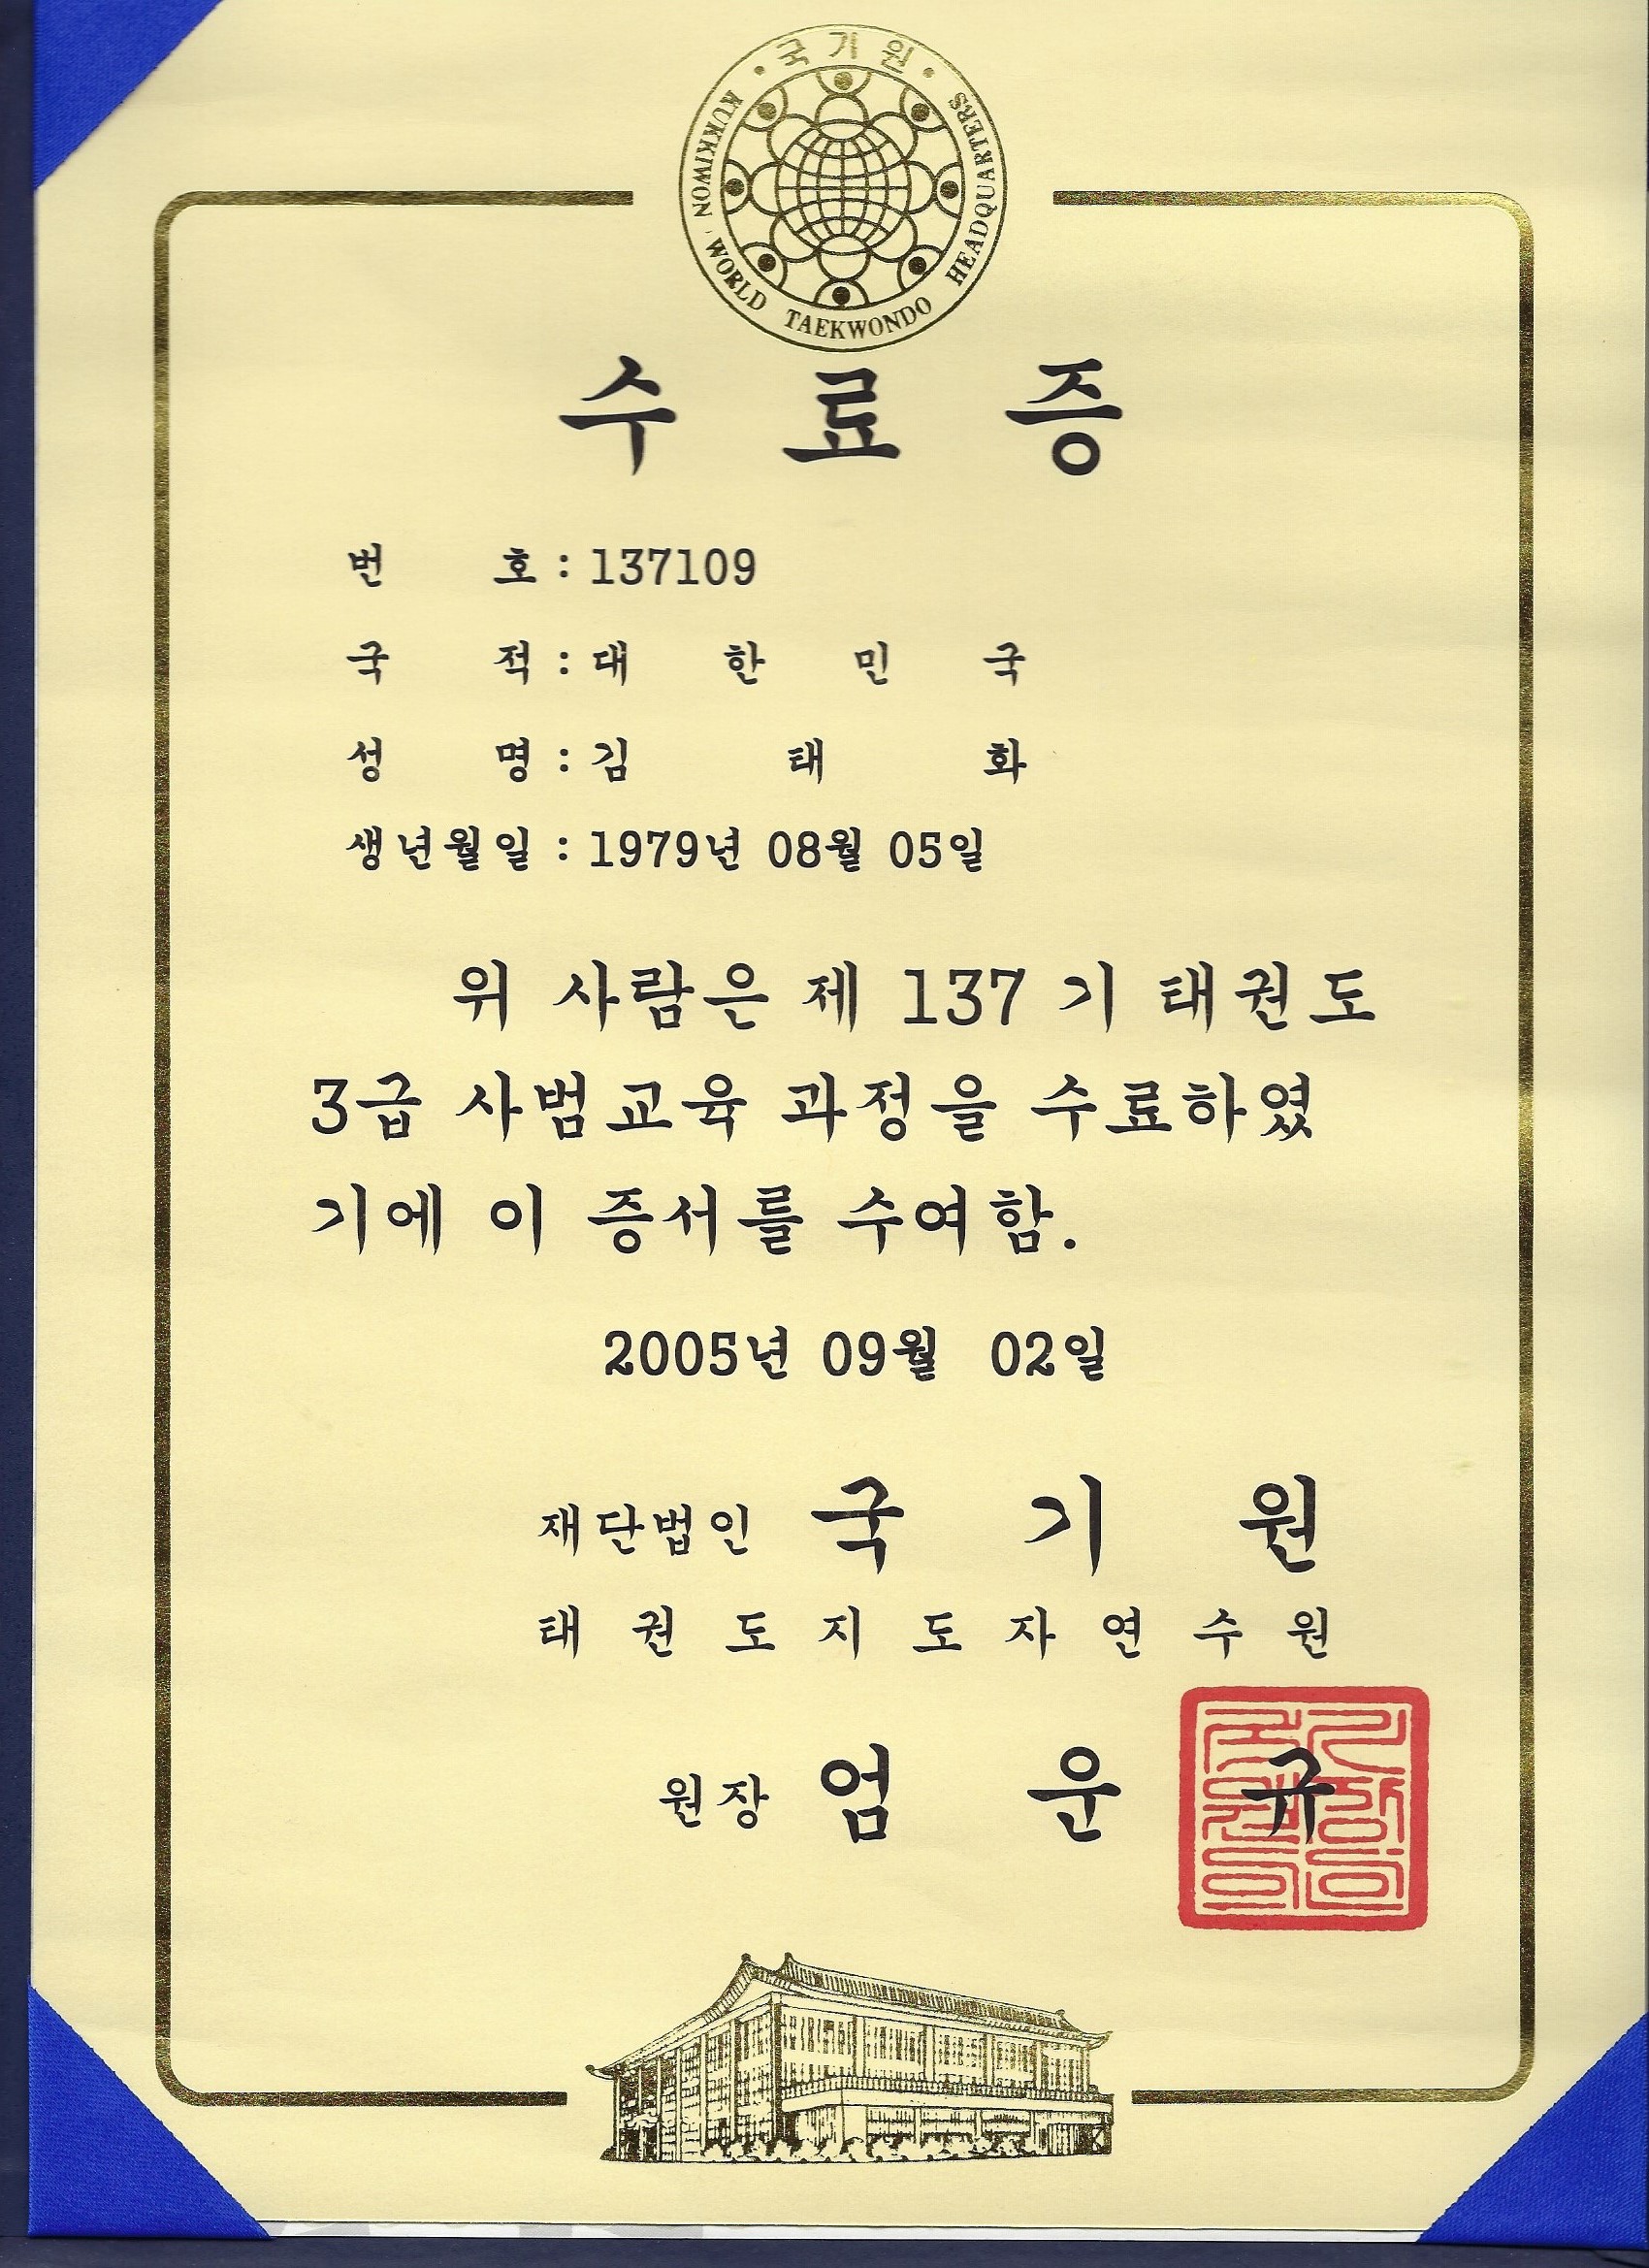 국기원
KUKKIWON WORLD TAEKWONDO HEADQUARTERS
수료증
번호 : 137109
국적 : 대한민국
성명 : 김태화
생년월일 : 1979년 08월 05일
위 사람은 제 137 기 태권도
3급 사범교육 과정을 수료하였
기에 이 증서를 수여함.
2005년 09월 02일
재단법인 국기원
태권도지도자연수원
원장 엄운규